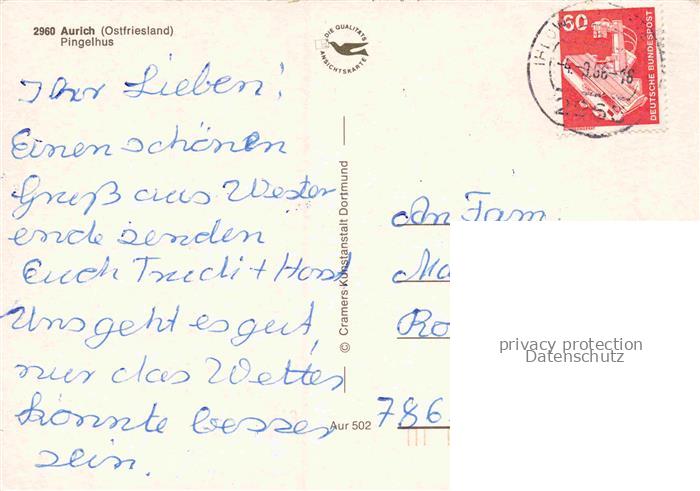 2960 Aurich (Ostfriesland)
Pingelhus
DIE QUALITÄTS
ANSICHTSKARTE
60
DEUTSCHE BUNDESPOST
Ihr Lieben!
Einen schönen
Gruß aus Wester
ende senden
Euch Trudi + Horst
Uns geht es gut,
nur das Wetter
könnte besser
sein.
© Cramers Kunstanstalt Dortmund
Aur 502
An Fam.
Ma
Ro
786
privacy protection
Datenschutz